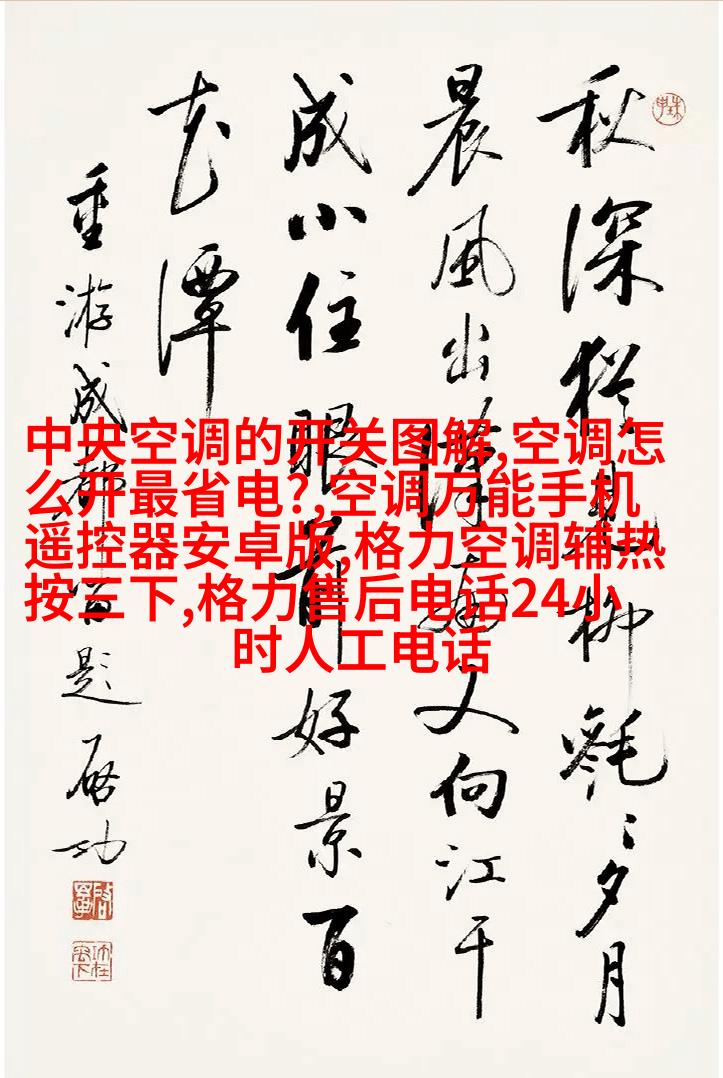 秋深猶柳毿〻夕月
晨風出又向江干
成小住眼前好景百
花潭
重游成都留題 啟功
中央空调的开关图解,空调怎
么开最省电?,空调万能手机
遥控器安卓版,格力空调辅热
按三下,格力售后电话24小
时人工电话